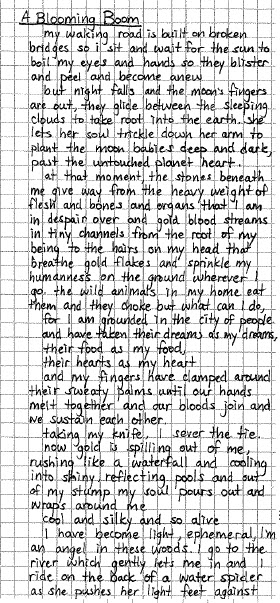 A Blooming Boom
my walking road is built on broken
bridges so i sit and wait for the sun to
boil my eyes and hands so they blister
and peel and become anew
but night falls and the moon's fingers
are out, they glide between the sleeping
clouds to take root into the earth. she
lets her soul trickle down her arm to
plant the moon babies deep and dark,
past the untouched planet heart.
at that moment, the stones beneath
me give way from the heavy weight of
flesh and bones and organs that I am
in despair over and gold blood streams
in tiny channels from the root of my
being to the hairs on my head that
breathe gold flakes and sprinkle my
humanness on the ground wherever I
go. the wild animals in my home eat
them and they choke but what can I do,
for I am grounded in the city of people
and have taken their dreams as my dreams,
their food as my food,
their hearts as my heart
and my fingers have clamped around
their sweaty palms until our hands
melt together and our bloods join and
we sustain each other.
taking my knife, I sever the tie.
now gold is spilling out of me,
rushing like a waterfall and cooling
into shiny, reflecting pools and out
of my stump my soul pours out and
wraps around me
cool and silky and so alive
I have become light, ephemeral, I'm
an angel in these woods. I go to the
river which gently lets me in and I
ride on the back of a water spider
as she pushes her light feet against